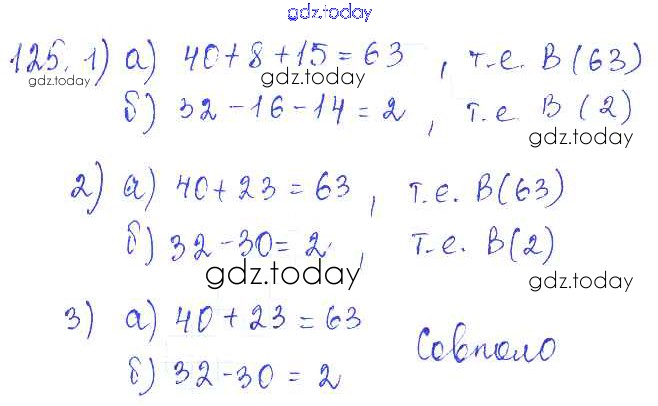 gdz.today
125. 1) а) 40 + 8 + 15 = 63, т.е. В (63)
gdz.today gdz.today
б) 32 - 16 - 14 = 2, т.е. В (2)
gdz.today
2) а) 40 + 23 = 63, т.е. В (63)
б) 32 - 30 = 2, т.е. В (2)
gdz.today gdz.today
3) а) 40 + 23 = 63
Совпало
б) 32 - 30 = 2
gdz.today